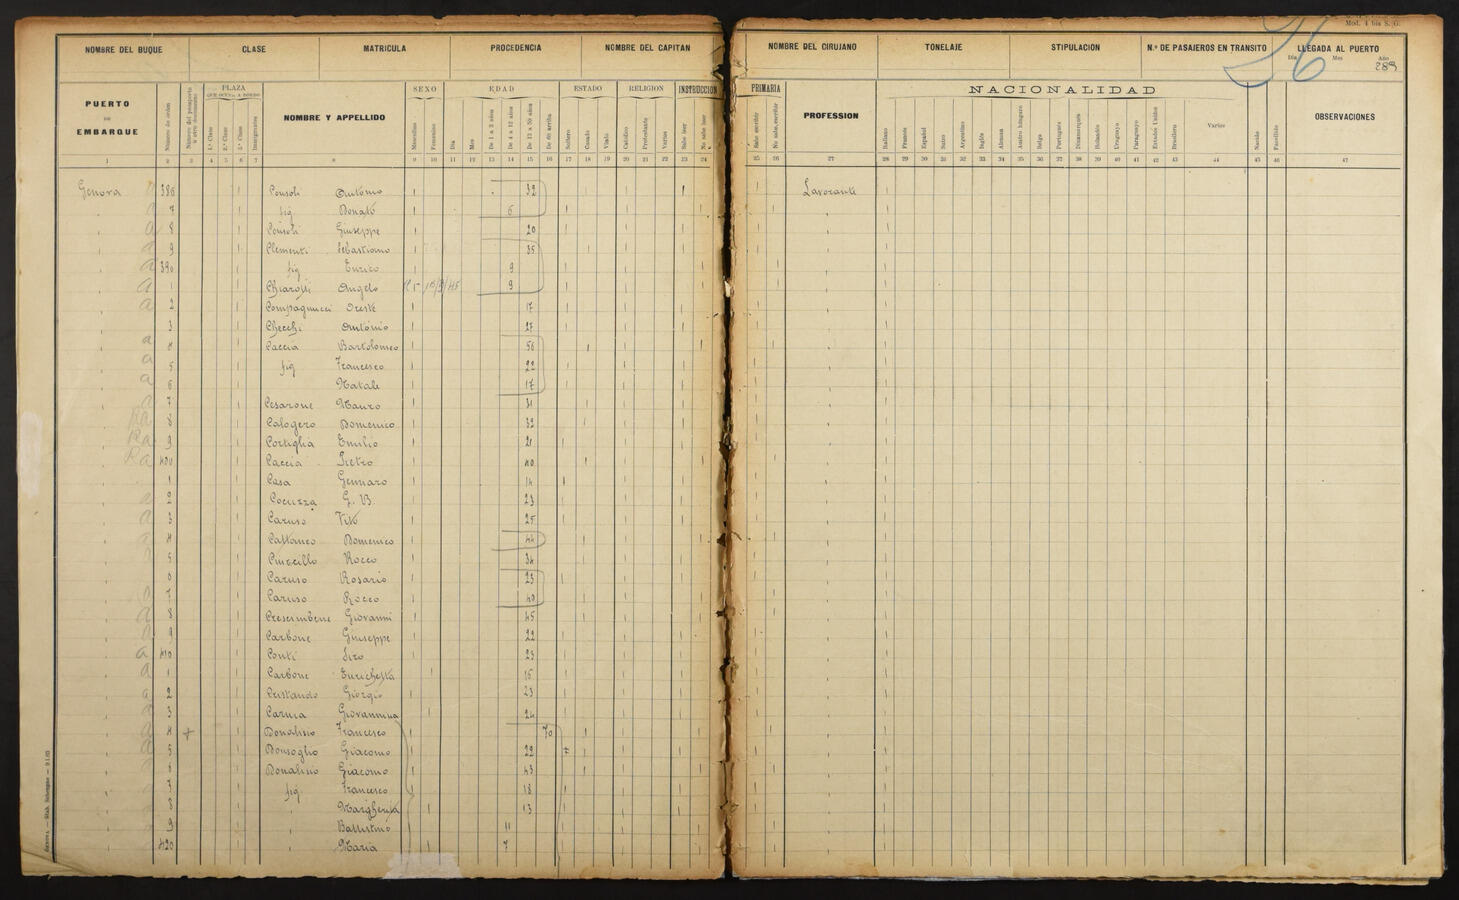 Mod. 4 bis S. G.
NOMBRE DEL BUQUE CLASE MATRICULA PROCEDENCIA NOMBRE DEL CAPITAN NOMBRE DEL CIRUJANO TONELAJE STIPULACION N.º DE PASAJEROS EN TRANSITO LLEGADA AL PUERTO
Dia Mes Año
26
PUERTO DE EMBARQUE
Número de orden
PLAZA QUE OCUPA A BORDO
1.ª Clase 2.ª Clase 3.ª Clase Inmigrantes
NOMBRE Y APPELLIDO
SEXO
Masculino Femenino
EDAD
Dia Mes De 1 a 3 años De 4 a 12 años De 13 a 59 años De 60 arriba
ESTADO
Soltero Casado Viudo
RELIGION
Católico Protestante Varios
INSTRUCCION PRIMARIA
Sabe leer No sabe leer Sabe escribir No sabe escribir
PROFESSION
NACIONALIDAD
Italiano Francés Español Suizo Argentino Inglés Aleman Austro húngaro Belga Portugués Dinamarqués Holandés Uruguayo Paraguayo Estados Unidos Brasilero Varios
Nacido Fallecido
OBSERVACIONES
1 2 3 4 5 6 7 8 9 10 11 12 13 14 15 16 17 18 19 20 21 22 23 24 25 26 27 28 29 30 31 32 33 34 35 36 37 38 39 40 41 42 43 44 45 46 47
Genova 386 Consoli Antonio 32 Lavorante
7 fig Donato 6
8 Consoli Giuseppe 20
9 Clementi Sebastiano 35
390 fig Enrico 9
1 Chiarotti Angelo 9
2 Compagnucci Oreste 17
3 Checchi Antonio 27
4 Caccia Bartolomeo 56
5 fig Francesco 22
6 Natale 17
7 Cesarone Mauro 31
8 Calogero Domenico 32
9 Cortiglia Emilio 21
400 Caccia Pietro 40
1 Casa Gennaro 14
2 Cocuzza G. B. 23
3 Caruso Vito 25
4 Cattaneo Domenico 44
5 Rocco 34
6 Caruso Rosario 23
7 Caruso Rocco 40
8 Crescimbene Giovanni 45
9 Carbone Giuseppe 22
410 Conti Siro 23
1 Carbone Enrichetta 16
2 Cristaudo Giorgio 23
3 Giovannina 24
4 Donalisio Francesco 70
5 Bonsoglio Giacomo 22
6 Donalisio Giacomo 43
7 fig Francesco 18
8 Margherita 13
9 Battistino 11
420 Maria 7